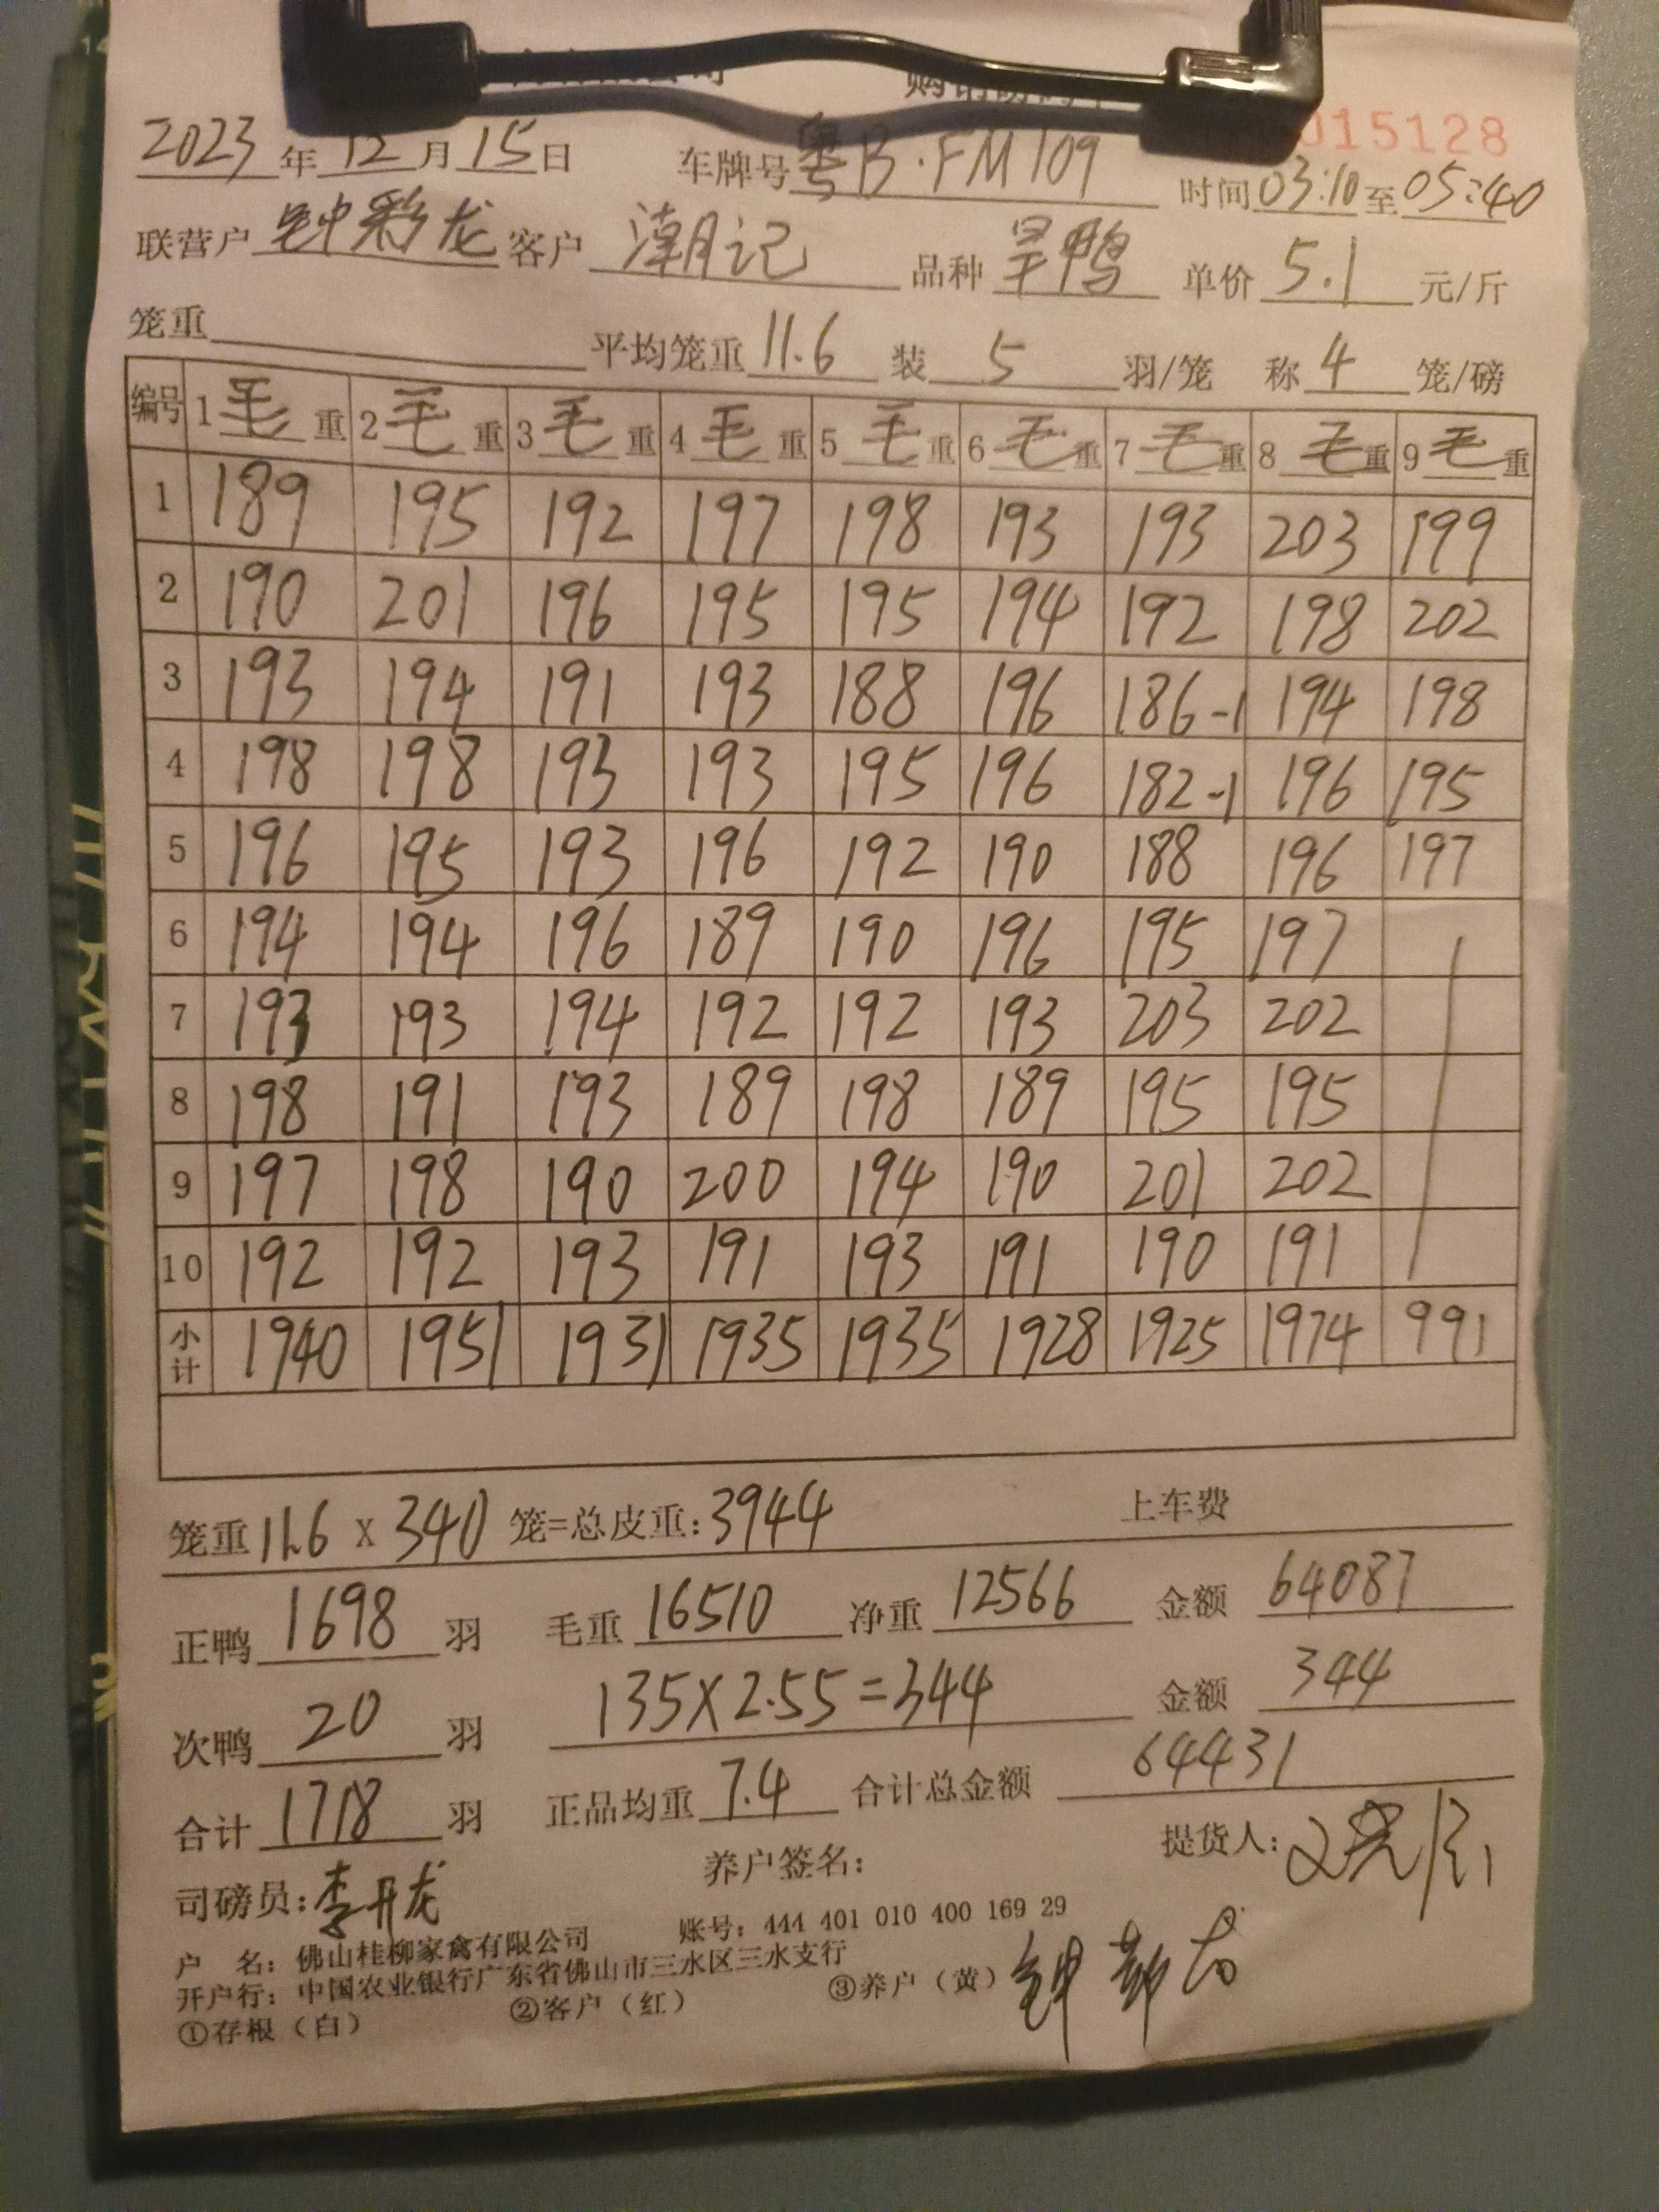 015128
2023年12月15日 车牌号粤B·FM109 时间03:10至05:40
联营户 钟彩龙 客户 潮记 品种 旱鸭 单价 5.1 元/斤
笼重 平均笼重 11.6 装 5 羽/笼 称 4 笼/磅
编号 1毛重 2毛重 3毛重 4毛重 5毛重 6毛重 7毛重 8毛重 9毛重
1 189 195 192 197 198 193 193 203 199
2 190 201 196 195 195 194 192 198 202
3 193 194 191 193 188 196 186-1 194 198
4 198 198 193 193 195 196 182-1 196 195
5 196 195 193 196 192 190 188 196 197
6 194 194 196 189 190 196 195 197
7 193 193 194 192 192 193 203 202
8 198 191 193 189 198 189 195 195
9 197 198 190 200 194 190 201 202
10 192 192 193 191 193 191 190 191
小计 1940 1951 1931 1935 1935 1928 1925 1974 991
笼重11.6 x 340 笼=总皮重:3944 上车费
正鸭 1698 羽 毛重 16510 净重 12566 金额 64087
次鸭 20 羽 135X2.55=344 金额 344
合计 1718 羽 正品均重 7.4 合计总金额 64431
司磅员:李开龙 养户签名: 提货人:
户 名: 佛山桂柳家禽有限公司 账号: 444 401 010 400 169 29
开户行: 中国农业银行广东省佛山市三水区三水支行
①存根(白) ②客户(红) ③养户(黄)